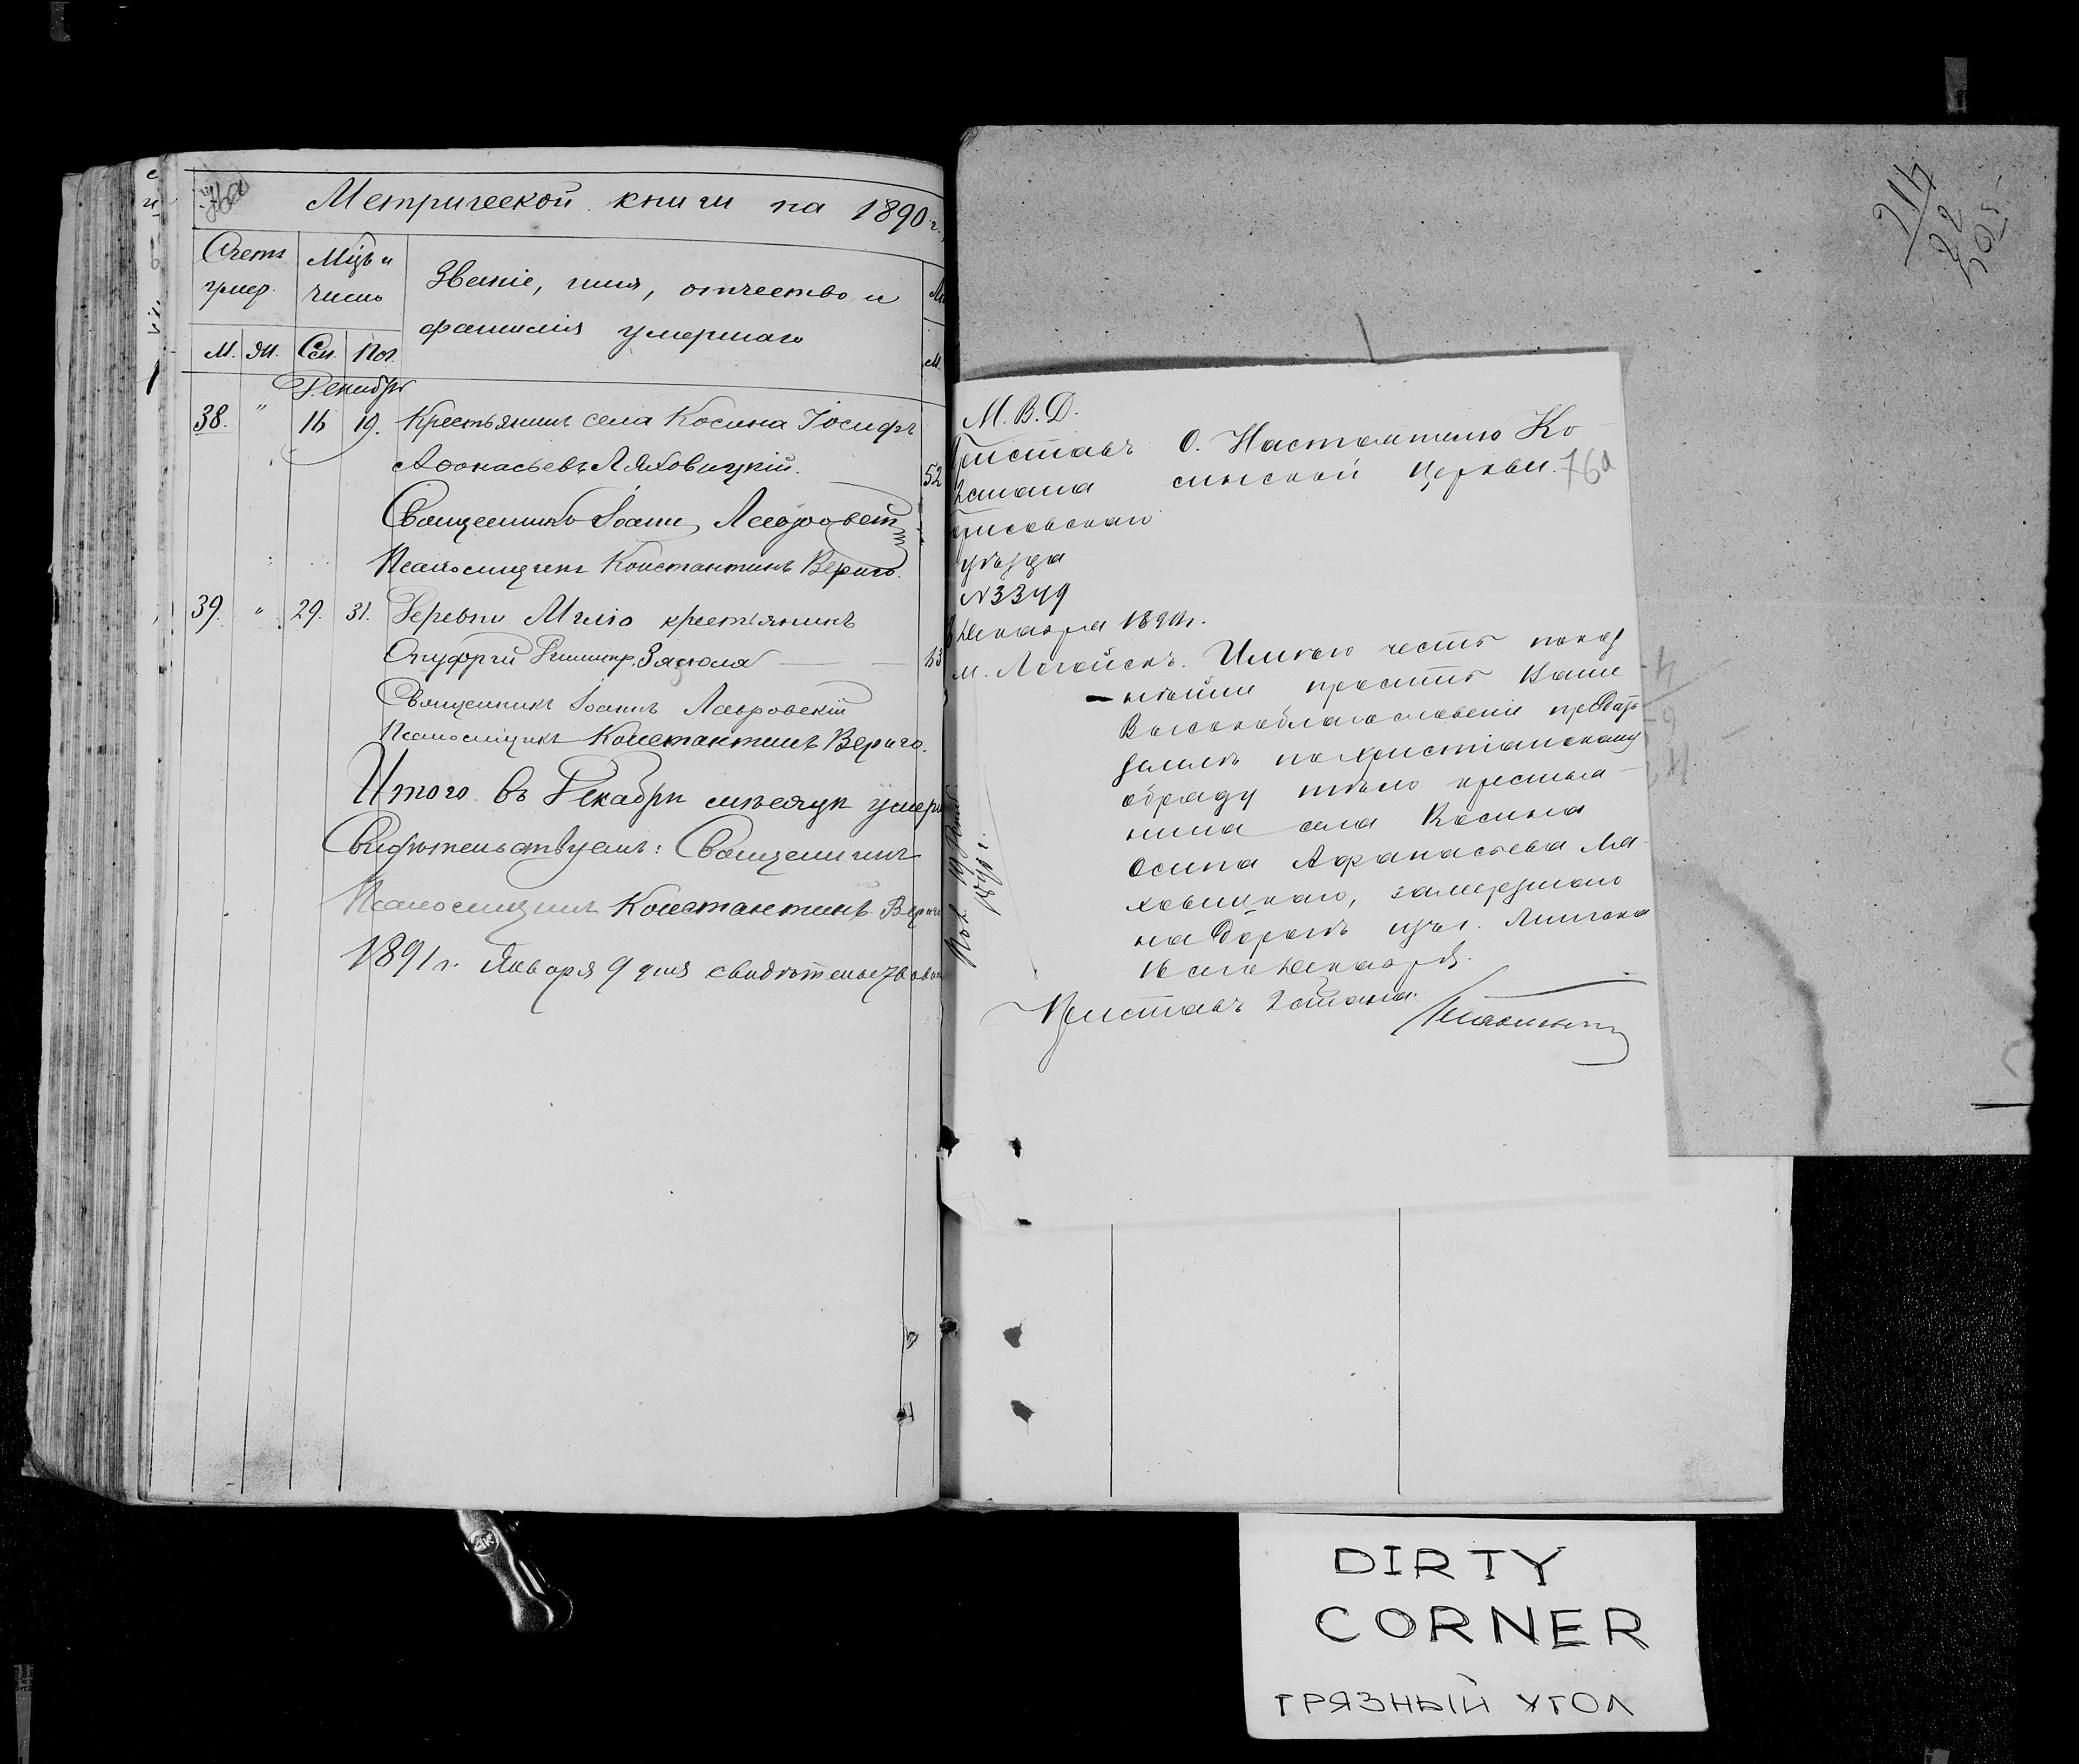 76а
Метрической книги на 1890 г.
Счетъ умер.
Мцъ и число
Званіе, имя, отчество и
фамилія умершаго
М. Ж. См. Пог.
м.
Декабрь
38. " 16 19. Крестьянинъ села Косина Іосифъ
Аѳонасьевъ Ляховицкій. 52
Священникъ Іоаннъ Лавровскій
Псаломщикъ Константинъ Вериго.
39. " 29. 31. Деревни Мчило крестьянинъ
Онуфрій
Священникъ Іоаннъ Лавровскій
Псаломщикъ Константинъ Вериго.
Итого въ Декабрѣ мѣсяцѣ умер
Свидѣтельствуемъ: Священникъ
Псаломщикъ Константинъ Вериго
1891 г. Января 9 дня свидѣтельствова
М. В. Д.
Приставъ
2 стана
Борисовскаго
уѣзда
№ 3349
Декабря 1890 г.
м. Логойскъ.
О. Настоятелю Ко
синской Церкви. 76а
Имѣю честь покор
нѣйше просить Ваше
Высокоблагословеніе предать
землѣ по христіанскому
обряду тѣло крестья-
нина села Косина
Осипа Афанасьева Ля-
ховицкаго, замерзшаго
на дорогѣ
16 сего Декабря.
Приставъ 2 стана
DIRTY
CORNER
ГРЯЗНЫЙ УГОЛ